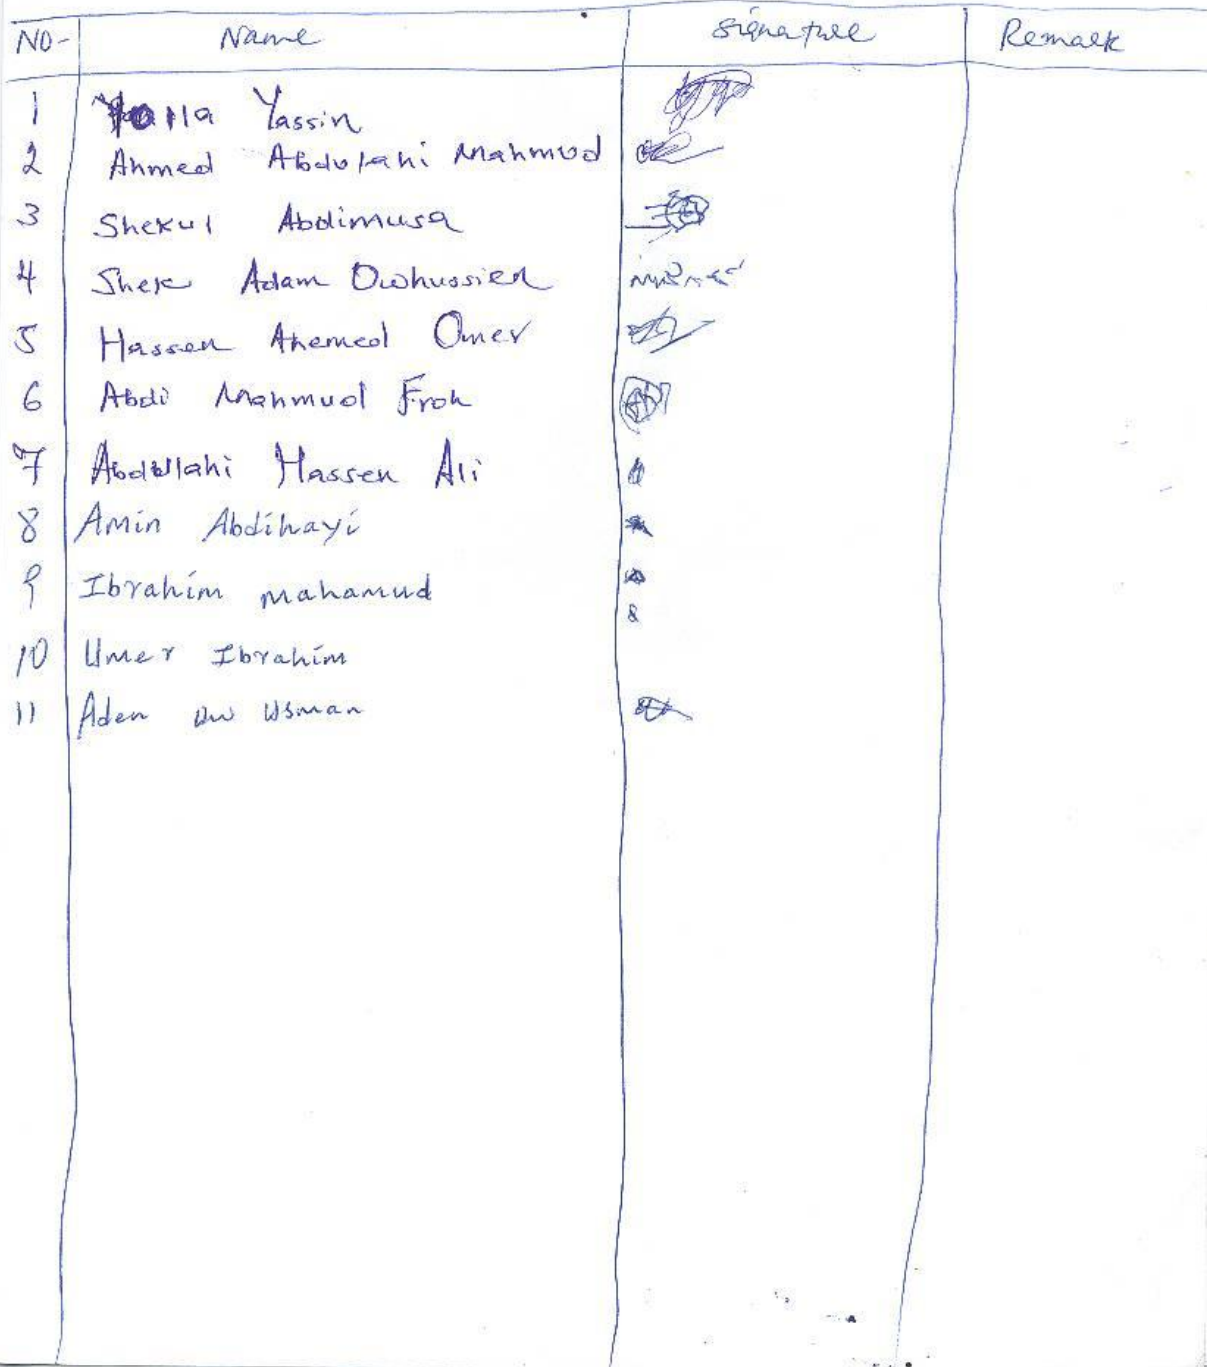 NO- Name Signature Remark
1 Yassin
2 Ahmed Abdulahi Mahmud
3 Shekul Abdimusa
4 Shek Adam Owhussien
5 Hassen Ahemed Omer
6 Abdi Mahmud Froh
7 Abdullahi Hassen Ali
8 Amin Abdihayi
9 Ibrahim mahamud
10 Umer Ibrahim
11 Aden aw Usman